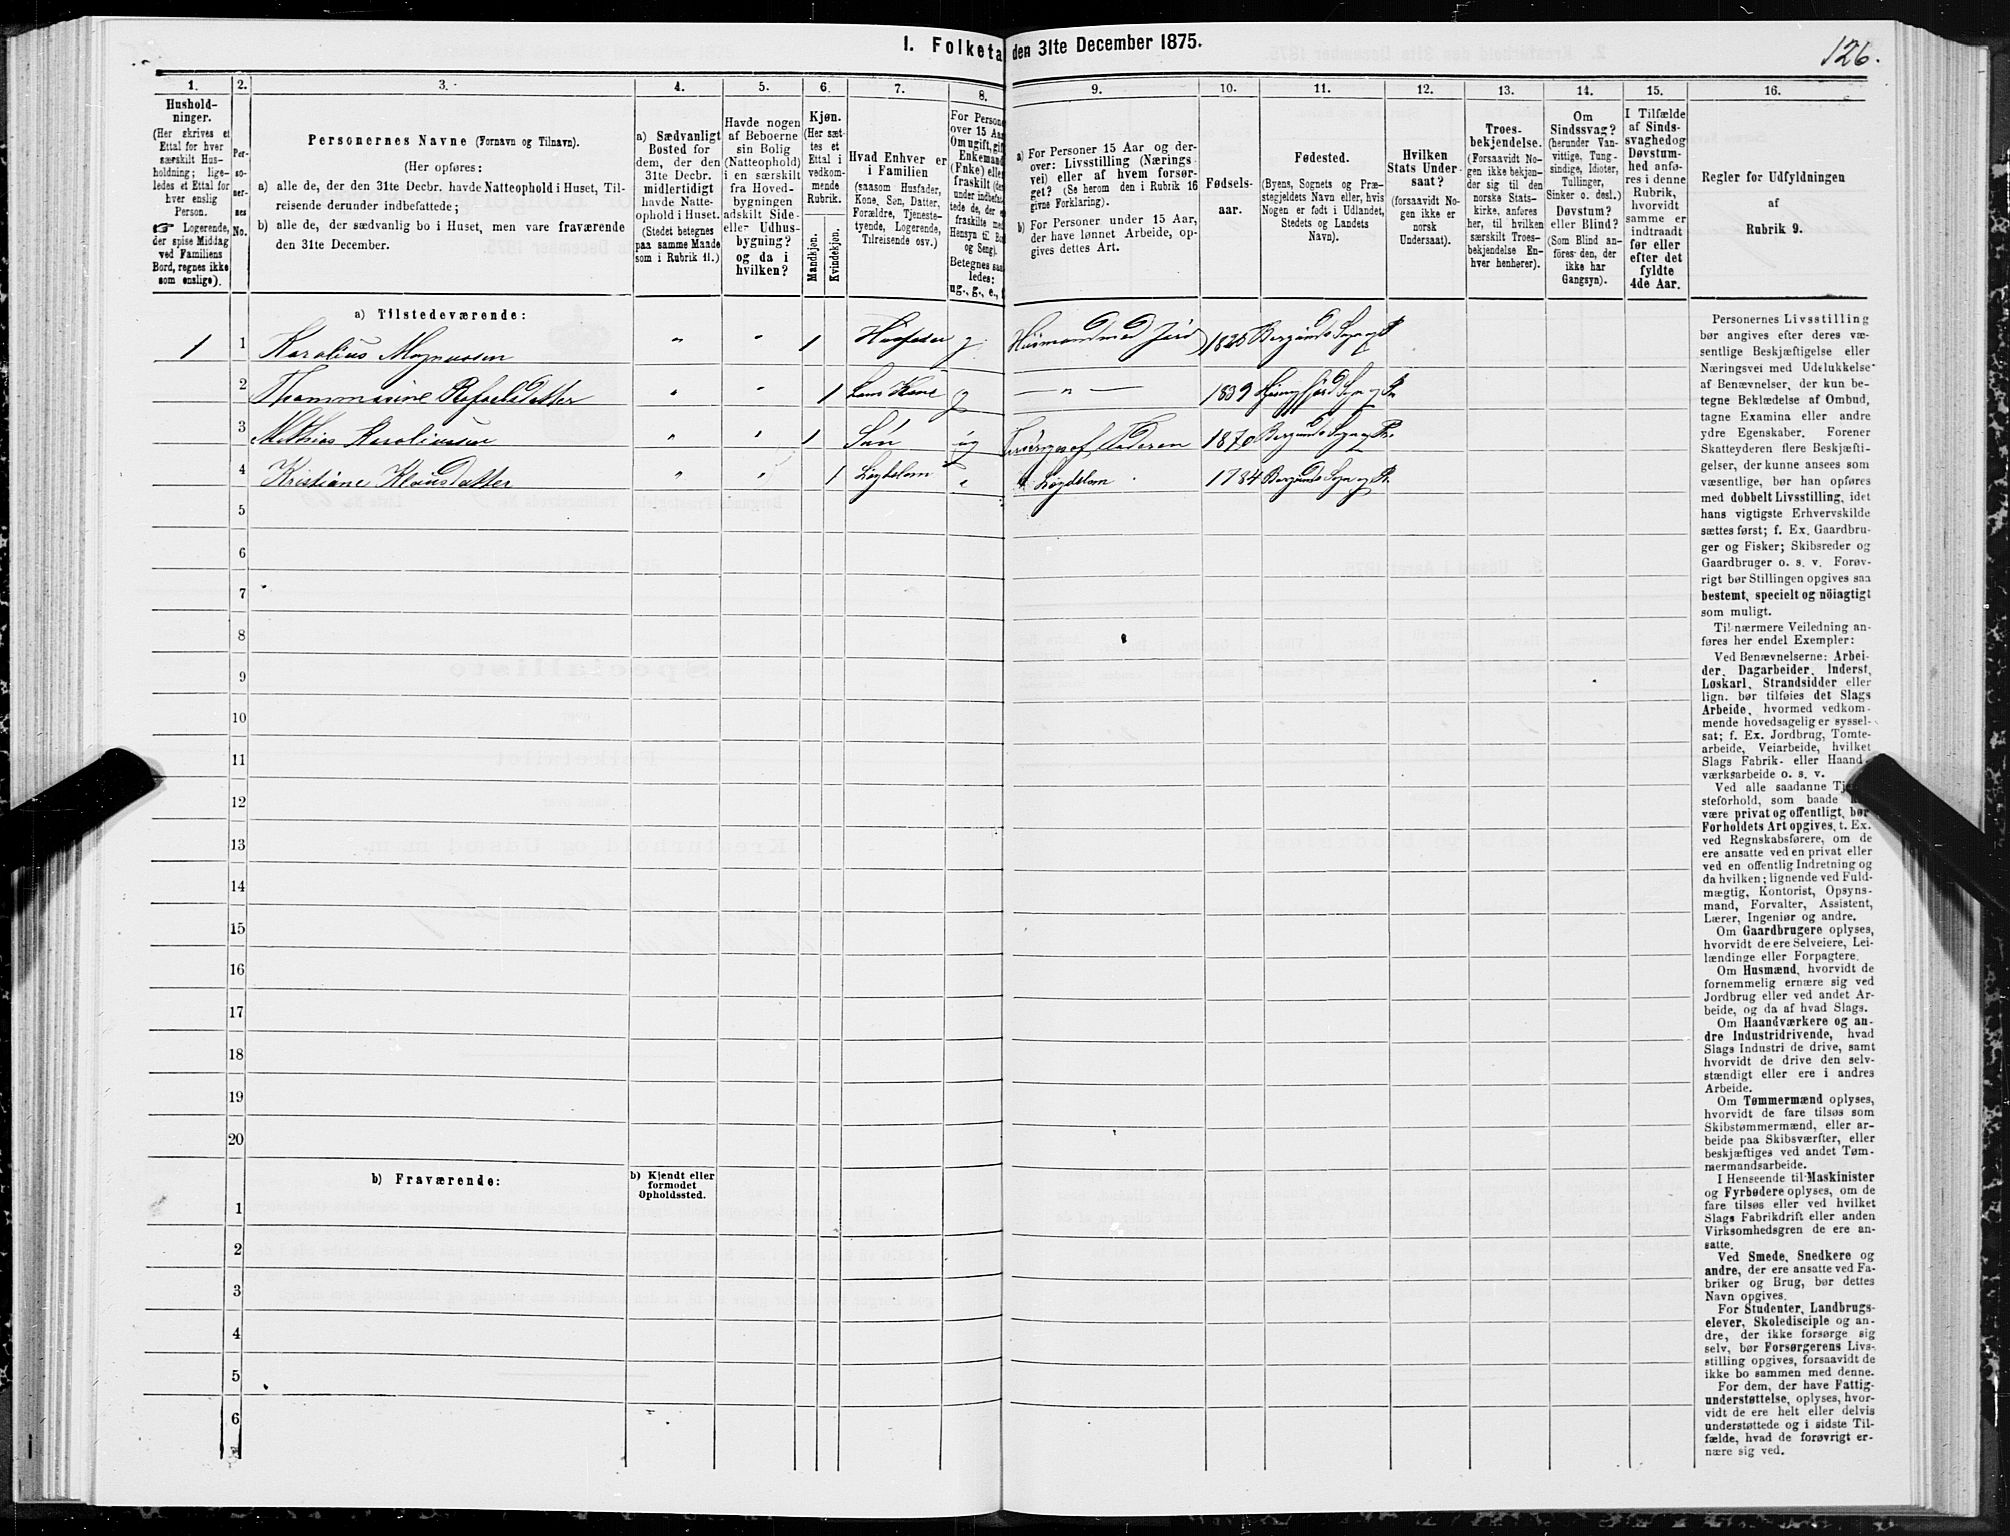 I. Folketa den 31te December 1875.
126.
1.
Hushold-
ninger.
(Her skrives et
Ettal for hver
særskilt Hus-
holdning; lige-
ledes et Ettal for
hver enslig
Person.
☞ Logerende,
der spise Middag
ved Familiens
Bord, regnes ikke
som enslige).
2.
Per-
so-
ner-
nes
No.
3.
Personernes Navne (Fornavn og Tilnavn).
(Her opføres:
a) alle de, der den 31te Decbr. havde Natteophold i Huset, Til-
reisende derunder indbefattede;
b) alle de, der sædvanlig bo i Huset, men vare fraværende
den 31te December.
4.
a) Sædvanligt
Bosted for
dem, der den
31te Decbr.
midlertidigt
havde Natte-
ophold i Huset.
(Stedet betegnes
paa samme Maade
som i Rubrik 11.)
5.
Havde nogen
af Beboerne
sin Bolig
(Natteophold)
i en særskilt
fra Hoved-
bygningen
adskilt Side-
eller Udhus-
bygning?
og da i
hvilken?
6.
Kjøn.
(Her sæt-
tes et
Ettal i
vedkom-
mende
Rubrik.
Mandkjøn.
Kvindekjøn.
7.
Hvad Enhver er
i Familien
(saasom Husfader,
Kone, Søn, Datter,
Forældre, Tjeneste-
tyende, Logerende,
Tilreisende osv.)
8.
For Person
over 15 Aa
Om ugift, gif
Enkemand
(Enke) elle
fraskilt (de
under indbefat
tede de, der e
fraskilte me
Hensyn til Bo
og Seng).
Betegnes saa
ledes:
ug., g., e., f
9.
a) For Personer 15 Aar og der-
over: Livsstilling (Nærings
vei) eller af hvem forsør-
get? (Se herom den i Rubrik 16
givne Forklaring).
b) For Personer under 15 Aar,
der have lønnet Arbeide, op-
gives dettes Art.
10.
Fødsels-
aar.
11.
Fødested.
(Byens, Sognets og Præ-
stegjeldets Navn eller, hvis
Nogen er født i Udlandet,
Stedets og Landets
Navn).
12.
Hvilken
Stats Under-
saat?
(forsaavidt No-
gen ikke er
norsk
Undersaat).
13.
Troes-
bekjendelse.
(Forsaavidt No-
gen ikke bekjen-
der sig til den
norske Stats-
kirke, anføres
her, til hvilken
særskilt Troes-
bekjendelse En-
hver henhører).
14.
Om
Sindssvag?
(herunder Van-
vittige, Tung-
sindige, Idioter,
Tullinger,
Sinker o. desl.)
Døvstum?
eller Blind?
(Som Blind an-
føres den, der
ikke har
Gangsyn).
15.
I Tilfælde
af Sinds-
svaghed og
Døvstum-
hed anfø-
res i denne
Rubrik,
hvorvidt
samme er
indtraadt
før eller
efter det
fyldte
4de Aar.
16.
Regler for Udfyldningen
af
Rubrik 9.
a) Tilstedeværende:
1 1 Karolius Magnussen " " 1 Husfader g Husmand med Jord 1825 Borgunds Sogn og P
2 Thommasine Rafaelsdatter " " 1 hans Kone g — " — 1839
3 Mathias Karoliussen " " 1 Søn ug Forsørges af Faderen 1870 Borgunds Sogn og Pr.
4 Kristiane Klausdatter " " 1 Lægdslem Lægdslem 1784 Borgunds Sogn og Pr.
5
6
7
8
9
10
11
12
13
14
15
16
17
18
19
20
b) Fraværende:
b) Kjendt eller
formodet
Opholdssted.
1
2
3
4
5
6
Personernes Livsstilling
bør angives efter deres væ-
sentlige Beskjæftigelse eller
Næringsvei med Udelukkelse
af Benævnelser, der kun be-
tegne Beklædelse af Ombud,
tagne Examina eller andre
ydre Egenskaber. Forener
Skatteyderen flere Beskjæfti-
gelser, der kunne ansees som
væsentlige, bør han opføres
med dobbelt Livsstilling, idet
hans vigtigste Erhvervskilde
sættes først; f. Ex. Gaardbru-
ger og Fisker; Skibsreder og
Gaardbruger o. s. v. Forøv-
rigt bør Stillingen opgives saa
bestemt, specielt og nöiagtigt
som muligt.
Til nærmere Veiledning an-
føres her endel Exempler:
Ved Benævnelserne: Arbei-
der, Dagarbeider, Inderst,
Løskarl, Strandsidder eller
lign. bør tilføies det Slags
Arbeide, hvormed vedkom-
mende hovedsagelig er syssel-
sat; f. Ex. Jordbrug, Tomte-
arbeide, Veiarbeide, hvilket
Slags Fabrik- eller Haand-
værksarbeide o. s. v.
Ved alle saadanne Tj
steforhold, som baade
være privat og offentligt, bør
Forholdets Art opgives, t. Ex.
ved Regnskabsførere, om de
ere ansatte ved en privat eller
ved en offentlig Indretning og
da hvilken; lignende ved Fuld-
mægtig, Kontorist, Opsyns-
mand, Forvalter, Assistent,
Lærer, Ingeniør og andre.
Om Gaardbrugere oplyses,
hvorvidt de ere Selveiere, Lei-
lændinge eller Forpagtere.
Om Husmænd, hvorvidt de
fornemmelig ernære sig ved
Jordbrug eller ved andet Ar-
beide, og da af hvad Slags.
Om Haandværkere og an-
dre Industridrivende, hvad
Slags Industri de drive, samt
hvorvidt de drive den selv-
stændigt eller ere i andres
Arbeide.
Om Tømmermænd oplyses,
hvorvidt de fare tilsøs som
Skibstømmermænd, eller ar-
beide paa Skibsværfter, eller
beskjæftiges ved andet Tøm-
mermandsarbeide.
I Henseende til Maskinister
og Fyrbødere oplyses, om de
fare tilsøs eller ved hvilket
Slags Fabrikdrift eller anden
Virksomhedsgren de ere an-
satte.
Ved Smede, Snedkere og
andre, der ere ansatte ved Fa-
briker og Brug, bør dettes
Navn opgives.
For Studenter, Landbrugs-
elever, Skoledisciple og an-
dre, der ikke forsørge sig
selv, bør Forsørgerens Livs-
stilling opgives, forsaavidt de
ikke bo sammen med denne.
For dem, der have Fattig-
understøttelse, oplyses, hvor-
vidt de ere helt eller delvis
understøttede og i sidste Til-
fælde, hvad de forøvrigt er-
nære sig ved.